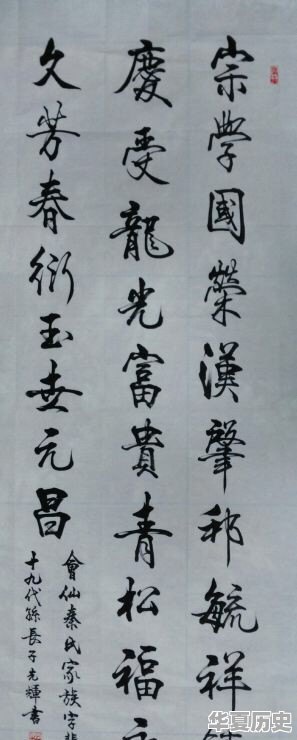 宗學國榮漢肇邦毓祥
慶受龍光富貴青松福
文芳春衍玉元昌
會仙秦氏家族字輩
十九代孫長子光輝書
华夏历史